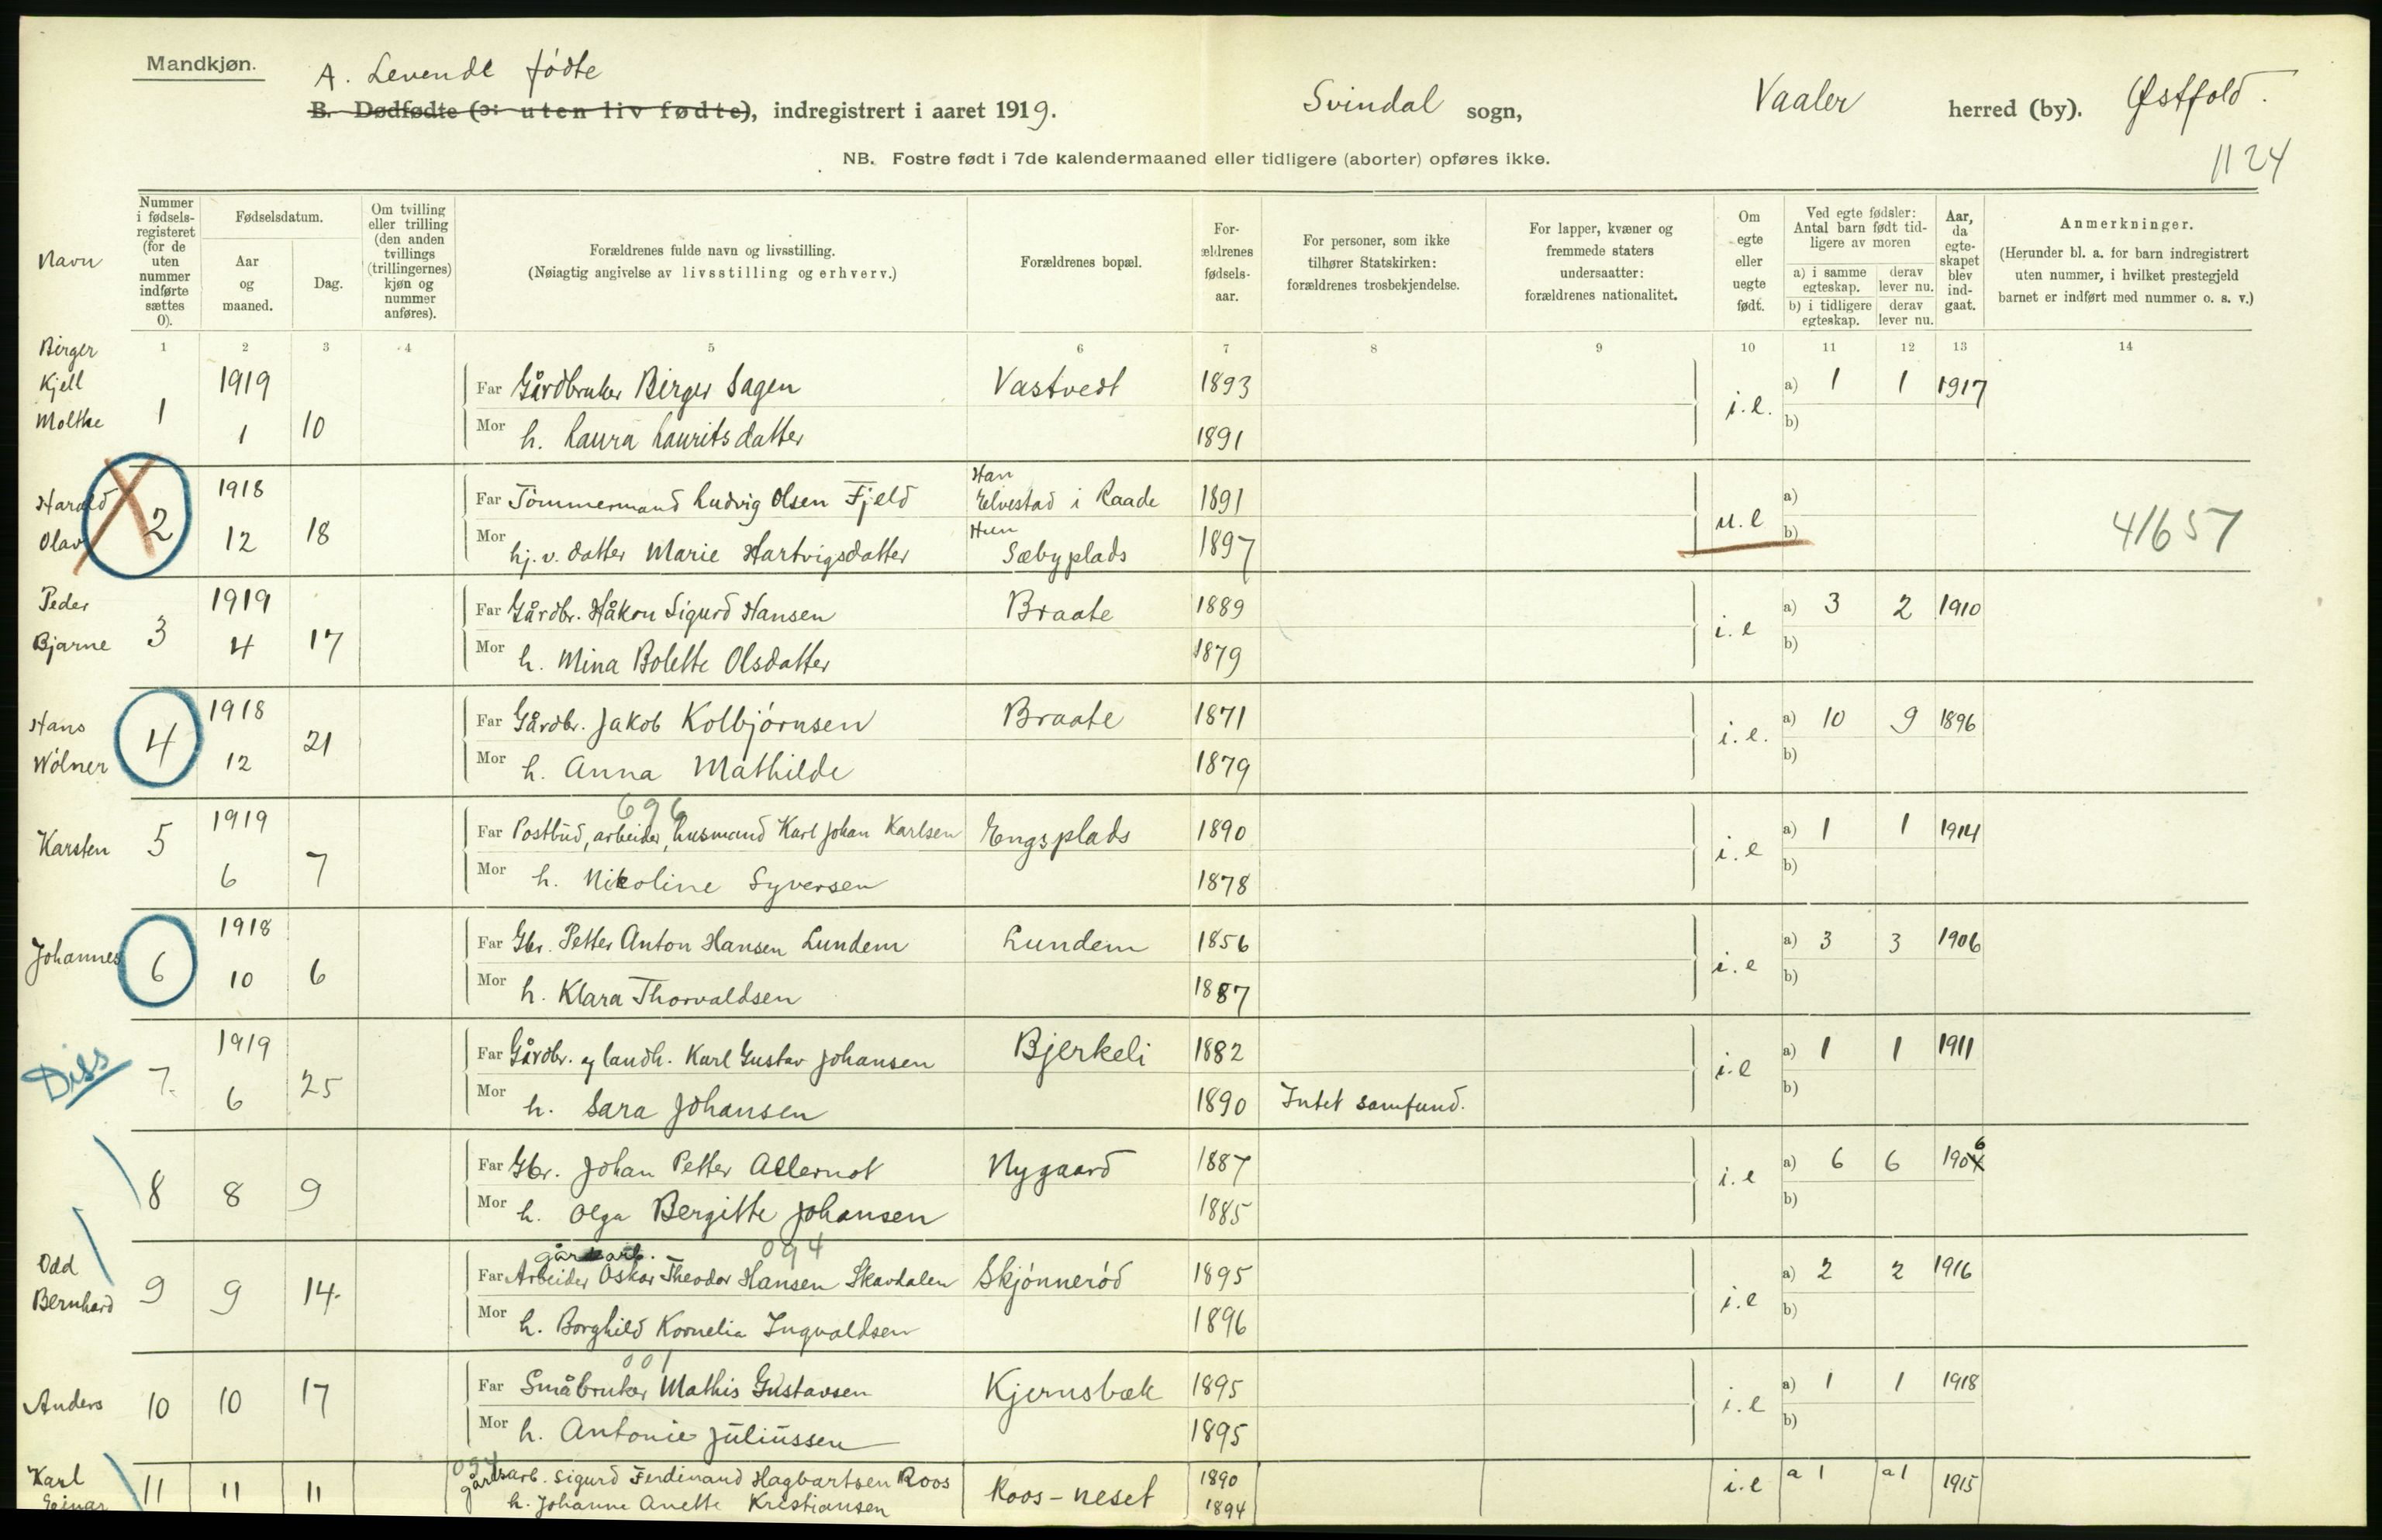 Mandkjøn.
A. Levende fødte
B. Dødfødte (ɔ: uten liv fødte), indregistrert i aaret 1919. Svindal sogn, Vaaler herred (by). Østfold.
NB. Fostre født i 7de kalendermaaned eller tidligere (aborter) opføres ikke.
1124
Navn
Nummer i fødsels-registeret (for de uten nummer indførte sættes 0).
Fødselsdatum.
Aar og maaned.
Dag.
Om tvilling eller trilling (den anden tvillings (trillingernes) kjøn og nummer anføres).
Forældrenes fulde navn og livsstilling.
(Nøiagtig angivelse av livsstilling og erhverv.)
Forældrenes bopæl.
For-ældrenes fødsels-aar.
For personer, som ikke tilhører Statskirken: forældrenes trosbekjendelse.
For lapper, kvæner og fremmede staters undersaatter: forældrenes nationalitet.
Om egte eller uegte født.
Ved egte fødsler: Antal barn født tid-ligere av moren
a) i samme egteskap. derav lever nu.
b) i tidligere egteskap. derav lever nu.
Aar, da egte-skapet blev ind-gaat.
Anmerkninger.
(Herunder bl. a. for barn indregistrert uten nummer, i hvilket prestegjeld barnet er indført med nummer o. s. v.)
1 2 3 4 5 6 7 8 9 10 11 12 13 14
Birger Kjell Moltke 1 1919 1 10
Far Gårdbruker Birger Sagen Vastvedt 1893 i.e. a) 1 1 1917
Mor h. Laura Lauritsdatter 1891 b)
Harald Olav 2 1918 12 18
Far Tömmermand Ludvig Olsen Fjeld Han Elvestad i Raade 1891 u.e a)
Mor hj. v. datter Marie Hartvigsdatter Hun Sæbyplads 1897 b) 41657
Peder Bjarne 3 1919 4 17
Far Gårdbr. Håkon Sigurd Hansen Braate 1889 i.e a) 3 2 1910
Mor h. Mina Bolette Olsdatter 1879 b)
Hans Wólner 4 1918 12 21
Far Gårdbr. Jakob Kolbjórnsen Braate 1871 i.e. a) 10 9 1896
Mor h. Anna Mathilde 1879 b)
Karsten 5 1919 6 7
696
Far Postbud, arbeider, husmand Karl Johan Karlsen Engsplads 1890 i.e a) 1 1 1914
Mor h. Nikoline Syversen 1878 b)
Johannes 6 1918 10 6
Far Gbr. Petter Anton Hansen Lundem Lundem 1856 i.e a) 3 3 1906
Mor h. Klara Thorvaldsen 1887 b)
Diss 7. 1919 6 25
Far Gårdbr. og landh. Karl Gustav Johansen Bjerkeli 1882 i.e a) 1 1 1911
Mor h. Sara Johansen 1890 Intet samfund. b)
8 8 9
Far Gbr. Johan Petter Allernot Nygaard 1887 i.e a) 6 6 1906
Mor h. Olga Bergitte Johansen 1885 b)
Odd Bernhard 9 9 14.
gårdsarb. 094
Far Arbeider Oskar Theodor Hansen Skavdalen Skjónneród 1895 i.e a) 2 2 1916
Mor h. Borghild Kornelia Ingvaldsen 1896 b)
Anders 10 10 17
001
Far Småbruker Mathis Gustavsen Kjernsbæk 1895 i.e a) 1 1 1918
Mor h. Antonie Juliussen 1895 b)
Karl Einar 11 11 11
094
gårdsarb. Sigurd Ferdinand Hagbartsen Roos Roos-neset 1890 i.e a 1 a 1 1915
h. Johanne Anette Kristiansen 1894